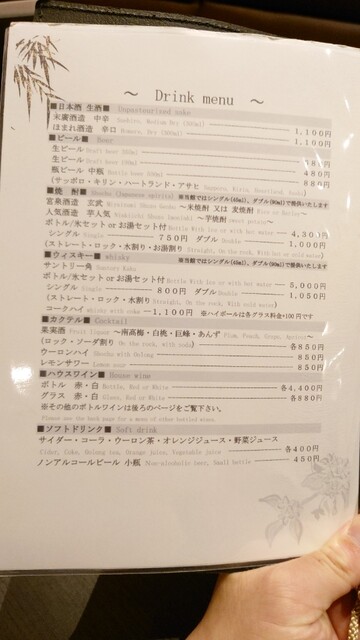 ～ Drink menu ～
■日本酒 生酒■ Unpasteurised sake
末廣酒造 中辛 Suehiro, Medium Dry (300ml) 1,100円
ほまれ酒造 辛口 Homare, Dry (300ml) 1,100円
■ビール■ Beer
生ビール Draft beer
生ビール Draft beer 480円
瓶ビール 中瓶 Bottle beer 880円
(サッポロ・キリン・ハートランド・アサヒ Sapporo, Kirin, Heartland, Asahi)
■焼 酎■ Shochu (Japanese spirits) ※当館ではシングル(45ml)、ダブル(90ml)で提供いたします
富泉酒造 玄武 ～米焼酎 又は 麦焼酎 Rice or Barley～
人気酒造 芋人気 ～芋焼酎 Sweet potato～
ボトル/氷セット or お湯セット付 Bottle With Ice or with hot water 4,300円
シングル Single 750円 ダブル Double 1,000円
(ストレート・ロック・水割り・お湯割り Straight, On the rock, With cold water, with hot water)
■ウィスキー■ whisky ※当館ではシングル(45ml)、ダブル(90ml)で提供いたします
サントリー角 Suntory Kaku
ボトル/氷セット or お湯セット付 Bottle With Ice or with hot water 5,000円
シングル Single 800円 ダブル Double 1,050円
(ストレート・ロック・水割り Straight, On the rock, With cold water)
コークハイ whisky with coke 1,100円 ※ハイボールは各グラス料金+100円です
■カクテル■ Cocktail
果実酒 Fruit liquor ～南高梅・白桃・巨峰・あんず Plum, Peach, Grape, Apricot～
(ロック・ソーダ割り On the rock, with soda) 各850円
ウーロンハイ Shochu with Oolong 850円
レモンサワー Lemon sour 850円
■ハウスワイン■ House wine
ボトル 赤・白 Bottle, Red or White 各4,400円
グラス 赤・白 Glass, Red or White 各880円
※その他のボトルワインは後ろのページをご覧下さい。
Please see the back page for a menu of other bottled wines.
■ソフトドリンク■ Soft drink
サイダー・コーラ・ウーロン茶・オレンジジュース・野菜ジュース
Cider, Coke, Oolong tea, Orange juice, Vegetable juice 各400円
ノンアルコールビール 小瓶 Non-alcoholic beer, Small bottle 450円